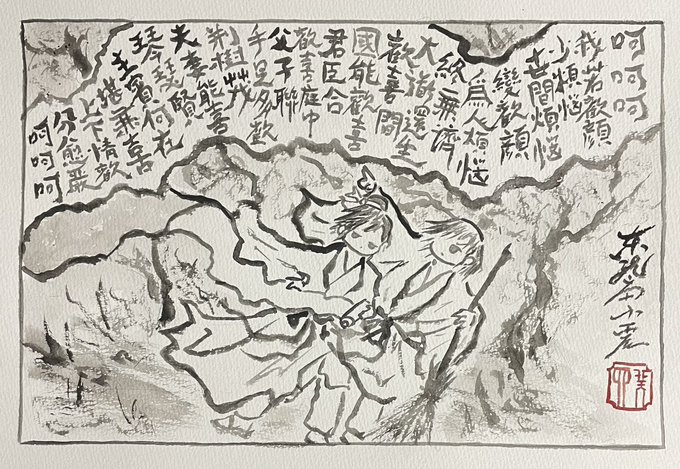 呵呵呵
我若歡顔
少煩惱
世間煩惱
變歡顔
為人煩惱
終無濟
大道還生
歡喜間
國能歡喜
君臣合
歡喜庭中
父子聯
手足多歡
荊樹茂
夫妻能喜
琴瑟賢
主賓何在
堪無喜
上下情歡
分愈嚴
呵呵呵
癸卯